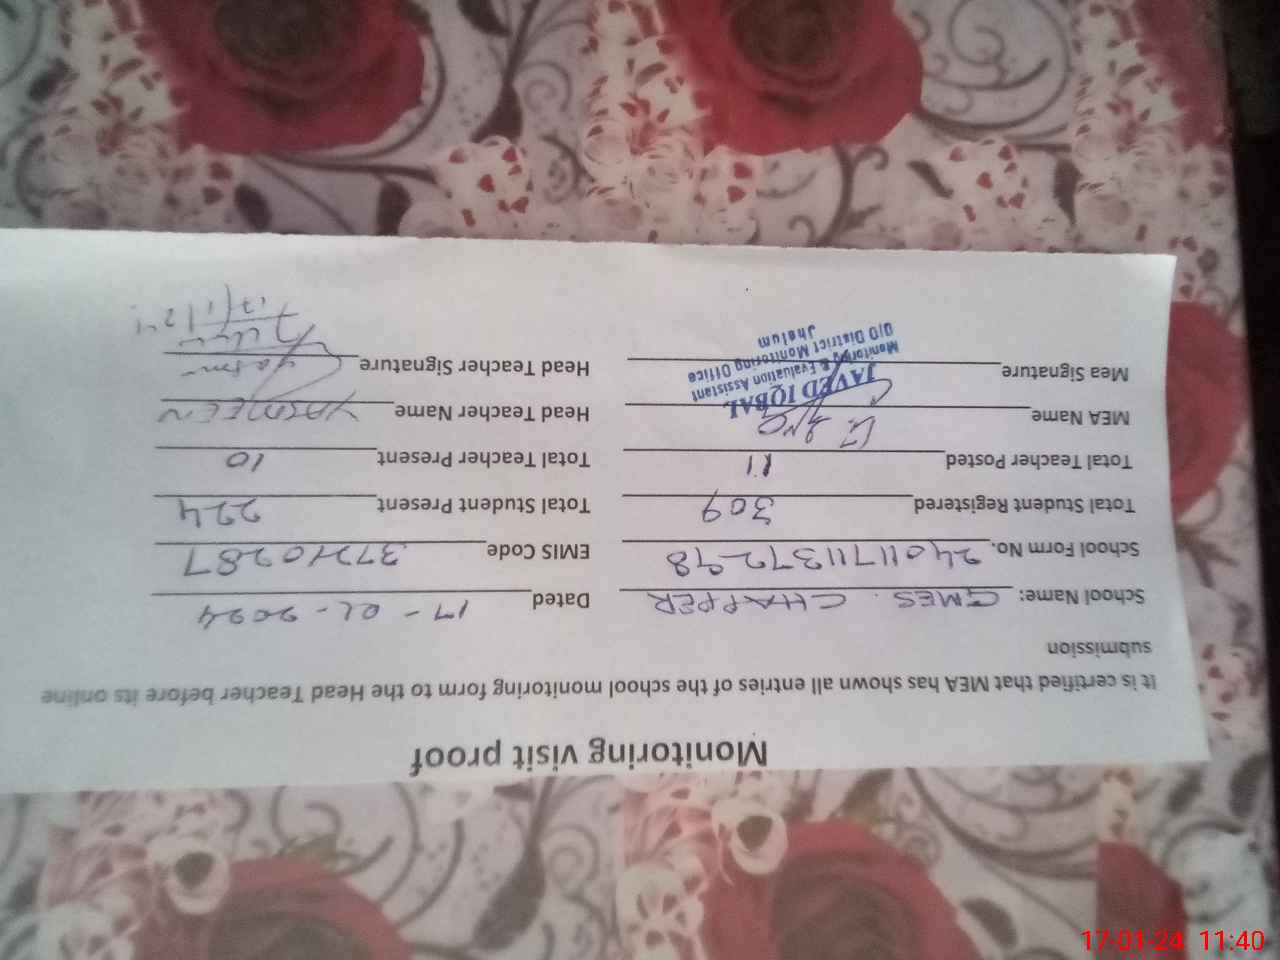 Monitoring visit proof
It is certified that MEA has shown all entries of the school monitoring form to the Head Teacher before its online
submission
School Name: GMES. CHAPPER Dated 17-01-2024
School Form No. 2401171137298 EMIS Code 37210287
Total Student Registered 309 Total Student Present 224
Total Teacher Posted 11 Total Teacher Present 10
MEA Name Head Teacher Name YASMEEN
Mea Signature Head Teacher Signature
JAVED IQBAL
Monitoring & Evaluation Assistant
O/O District Monitoring Office
Jhelum
17/1/24
17-01-24 11:40